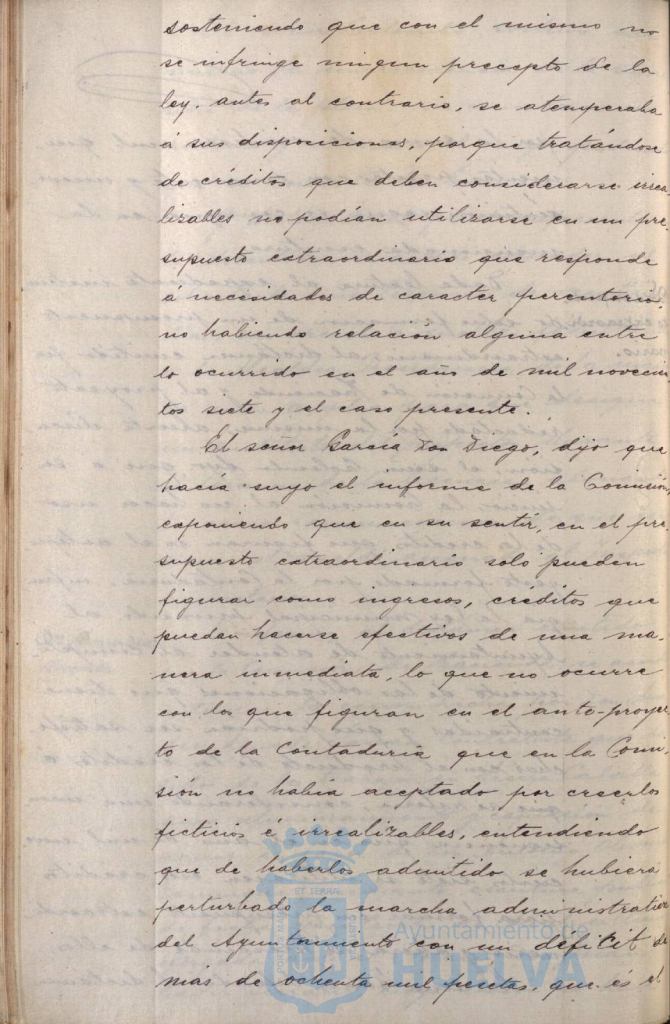 sosteniendo que con el mismo no
se infringe ningun precepto de la
ley, antes al contrario, se atemperaba
á sus disposiciones, porque tratándose
de créditos que deben considerarse irrea
lizables no podían utilizarse en un pre-
supuesto extraordinario que responde
á necesidades de caracter perentorio,
no habiendo relación alguna entre
lo ocurrido en el año de mil novecien
tos siete y el caso presente.
El señor García Don Diego, dijo que
hacía suyo el informe de la Comisión,
exponiendo que en su sentir, en el pre-
supuesto extraordinario solo pueden
figurar como ingresos, creditos que
puedan hacerse efectivos de una ma-
nera inmediata, lo que no ocurre
con los que figuran en el ante-proyec
to de la Contaduría que en la Comi-
sión no había aceptado por creerlos
ficticios é irrealizables, entendiendo
que de haberlos admitido se hubiera
perturbado la marcha administrativa
del Ayuntamiento con un deficit de
más de ochenta mil pesetas, que és el
Ayuntamiento de
HUELVA